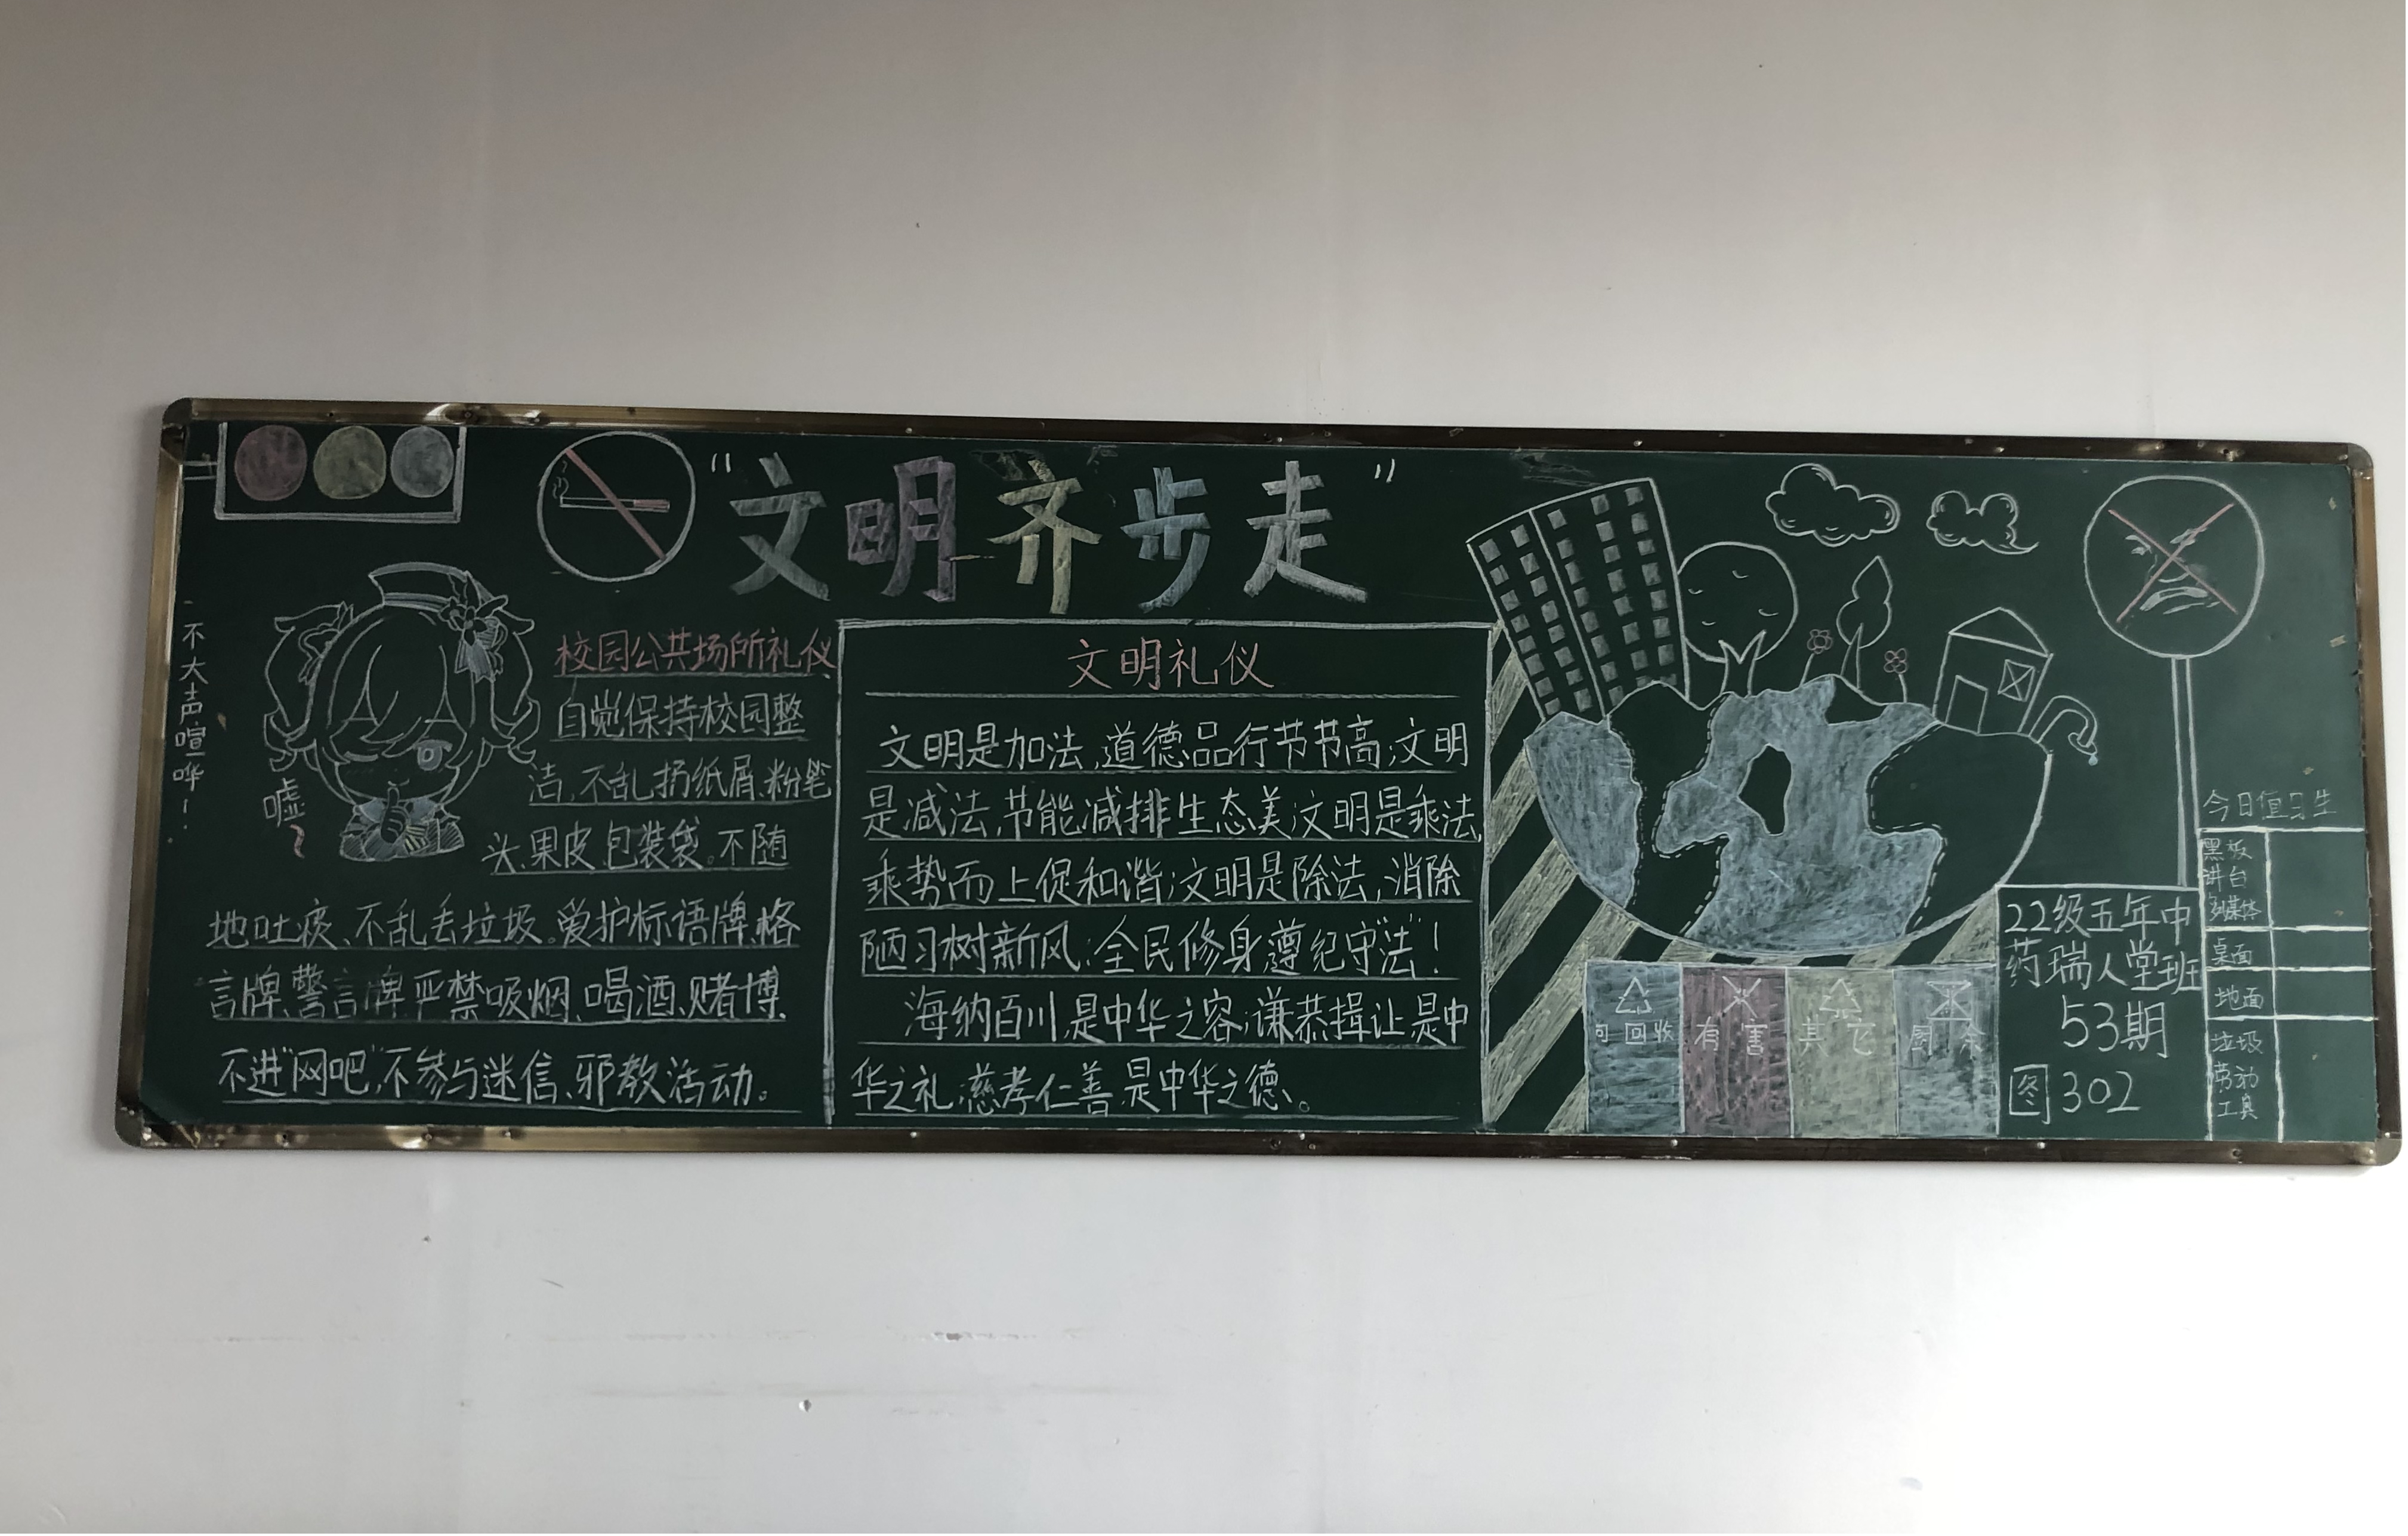 “文明齐步走”
不大声喧哗！
嘘
校园公共场所礼仪
自觉保持校园整
洁,不乱扔纸屑、粉笔
头、果皮、包装袋。不随
地吐痰、不乱丢垃圾。爱护标语牌、格
言牌、警言牌严禁吸烟、喝酒、赌博、
不进“网吧”,不参与迷信、邪教活动。
文明礼仪
文明是加法,道德品行节节高;文明
是减法,节能减排生态美;文明是乘法,
乘势而上促和谐;文明是除法,消除
陋习树新风:全民修身遵纪守“法”!
海纳百川,是中华之容;谦恭揖让,是中
华之礼;慈孝仁善,是中华之德。
可回收
有害
其它
厨余
22级五年中
药瑞人堂班
53期
图302
今日值习生
黑板
讲台
多媒体
桌面
地面
垃圾
劳动
工具